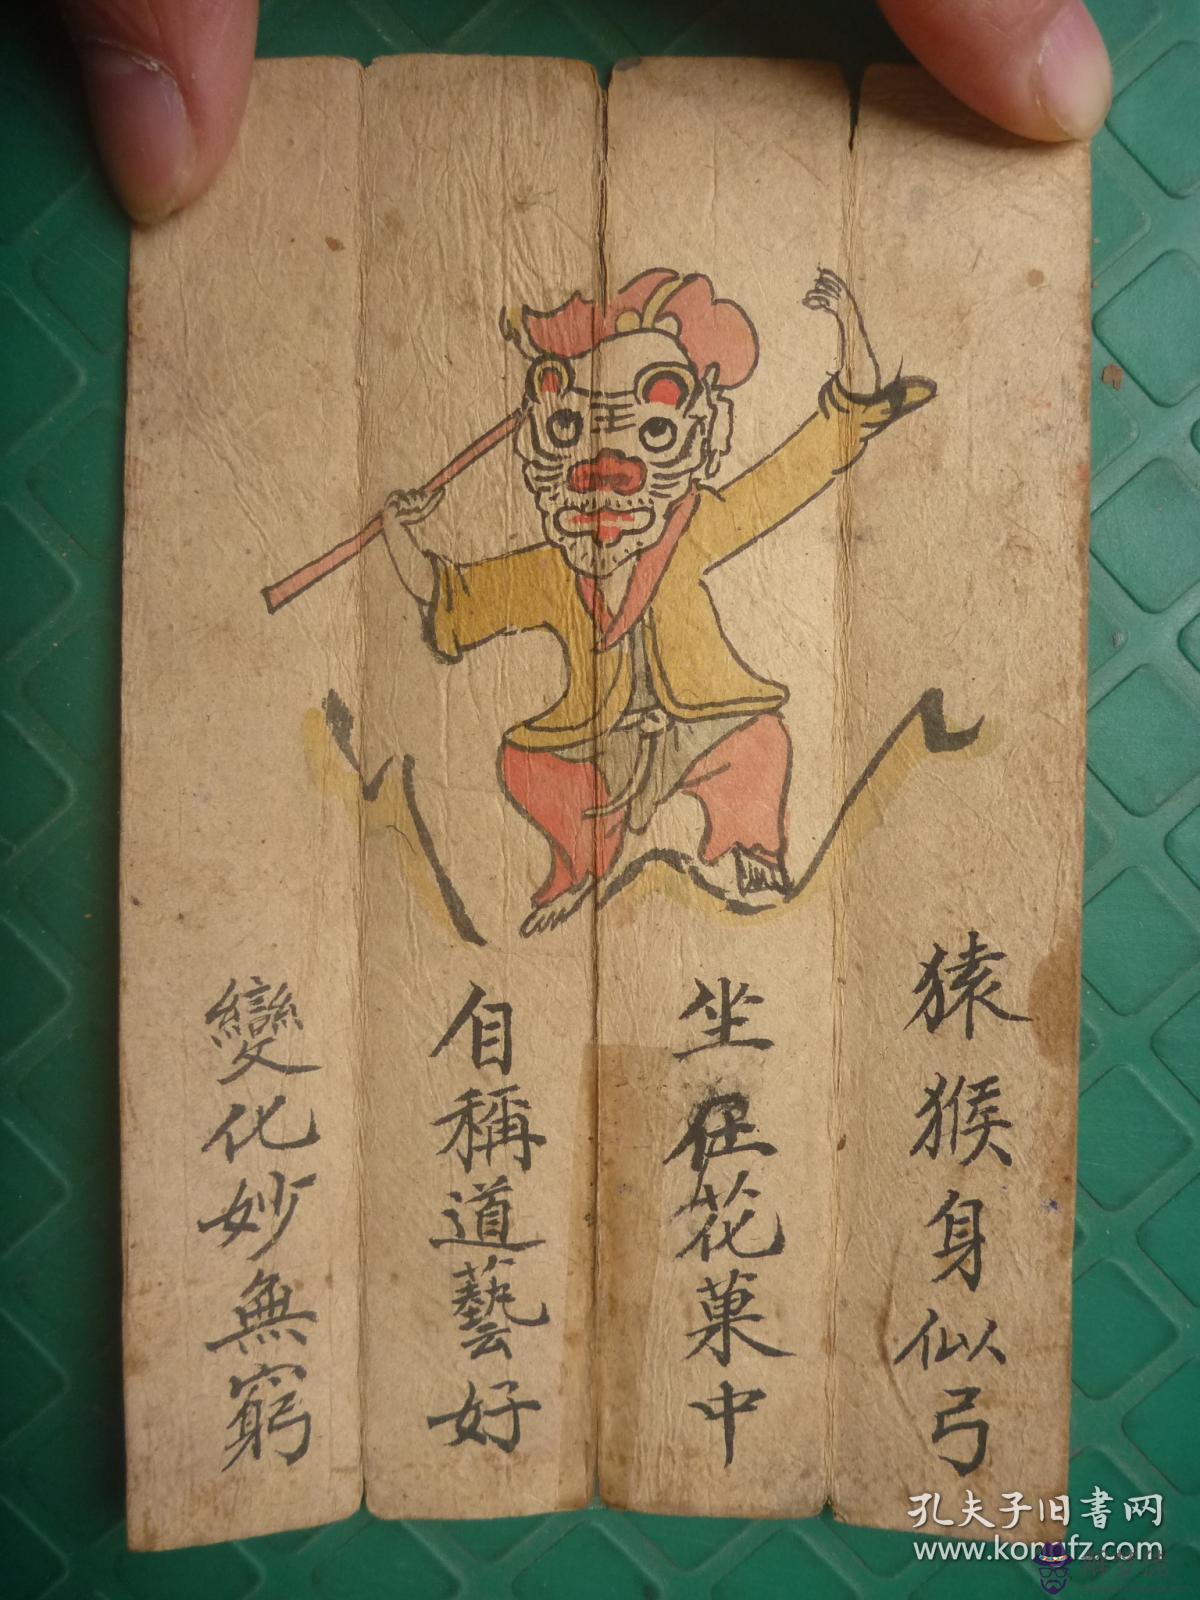 猿猴身似弓
坐在花菓中
自稱道藝好
變化妙無窮
孔夫子旧書网
www.kongfz.com